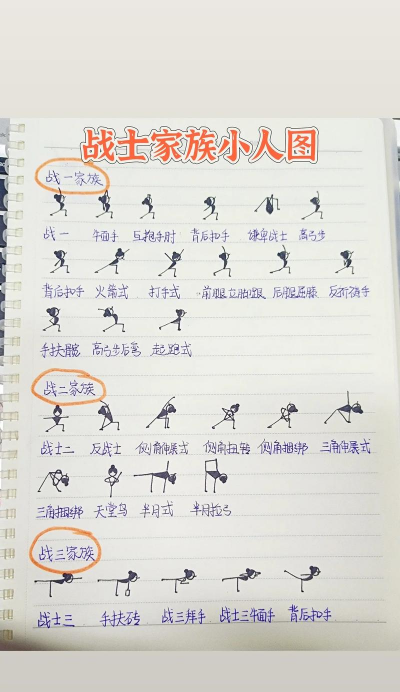 战士家族小人图
战一家族
战一 牛面手 互抱手肘 背后扣手 谦卑战士 高弓步
背后扣手 火箭式 打手式 前腿立脚跟 后腿屈膝 反祈祷手
手扶髋 高弓步后弯 起跑式
战二家族
战士二 反战士 侧角伸展式 侧角扭转 侧角捆绑 三角伸展式
三角捆绑 天堂鸟 半月式 半月拉弓
战三家族
战士三 手扶砖 战三拜手 战士三牛面手 背后扣手